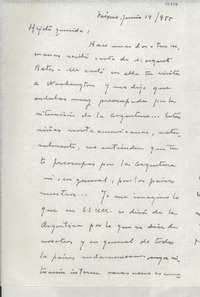 México, junio 14/955
Hijita querida:
Hace unas dos o tres se-
manas recibí carta de Margaret
Bates. Me contó en ella tu visita
a Washington y me dijo que
andabas muy preocupada por la
situación de la Argentina... Estas
niñas norteamericanas, natu-
ralmente, no entienden que tú
te preocupes por la Argentina
ni, en general, por los países
nuestros... Yo me imagino lo
que en EE.UU. se dirá de la
Argentina por lo que se dice de
nosotros y en general de todos
los países sudamericanos cuya si-
tuación interna